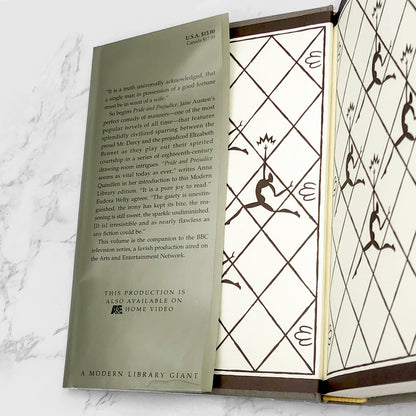 U.S.A. $15.00
Canada $17.95
"It is a truth universally acknowledged, that
a single man in possession of a good fortune
must be in want of a wife."
So begins Pride and Prejudice, Jane Austen's
perfect comedy of manners—one of the most
popular novels of all time—that features
splendidly civilized sparring between the
proud Mr. Darcy and the prejudiced Elizabeth
Bennet as they play out their spirited
courtship in a series of eighteenth-century
drawing-room intrigues. "Pride and Prejudice
seems as vital today as ever," writes Anna
Quindlen in her introduction to this Modern
Library edition. "It is a pure joy to read."
Eudora Welty agrees: "The gaiety is unextin-
guished, the irony has kept its bite, the rea-
soning is still sweet, the sparkle undiminished.
[It is] irresistible and as nearly flawless as
any fiction could be."
This volume is the companion to the BBC
television series, a lavish production aired on
the Arts and Entertainment Network.
THIS PRODUCTION IS
ALSO AVAILABLE ON
A&E HOME VIDEO
A MODERN LIBRARY GIANT